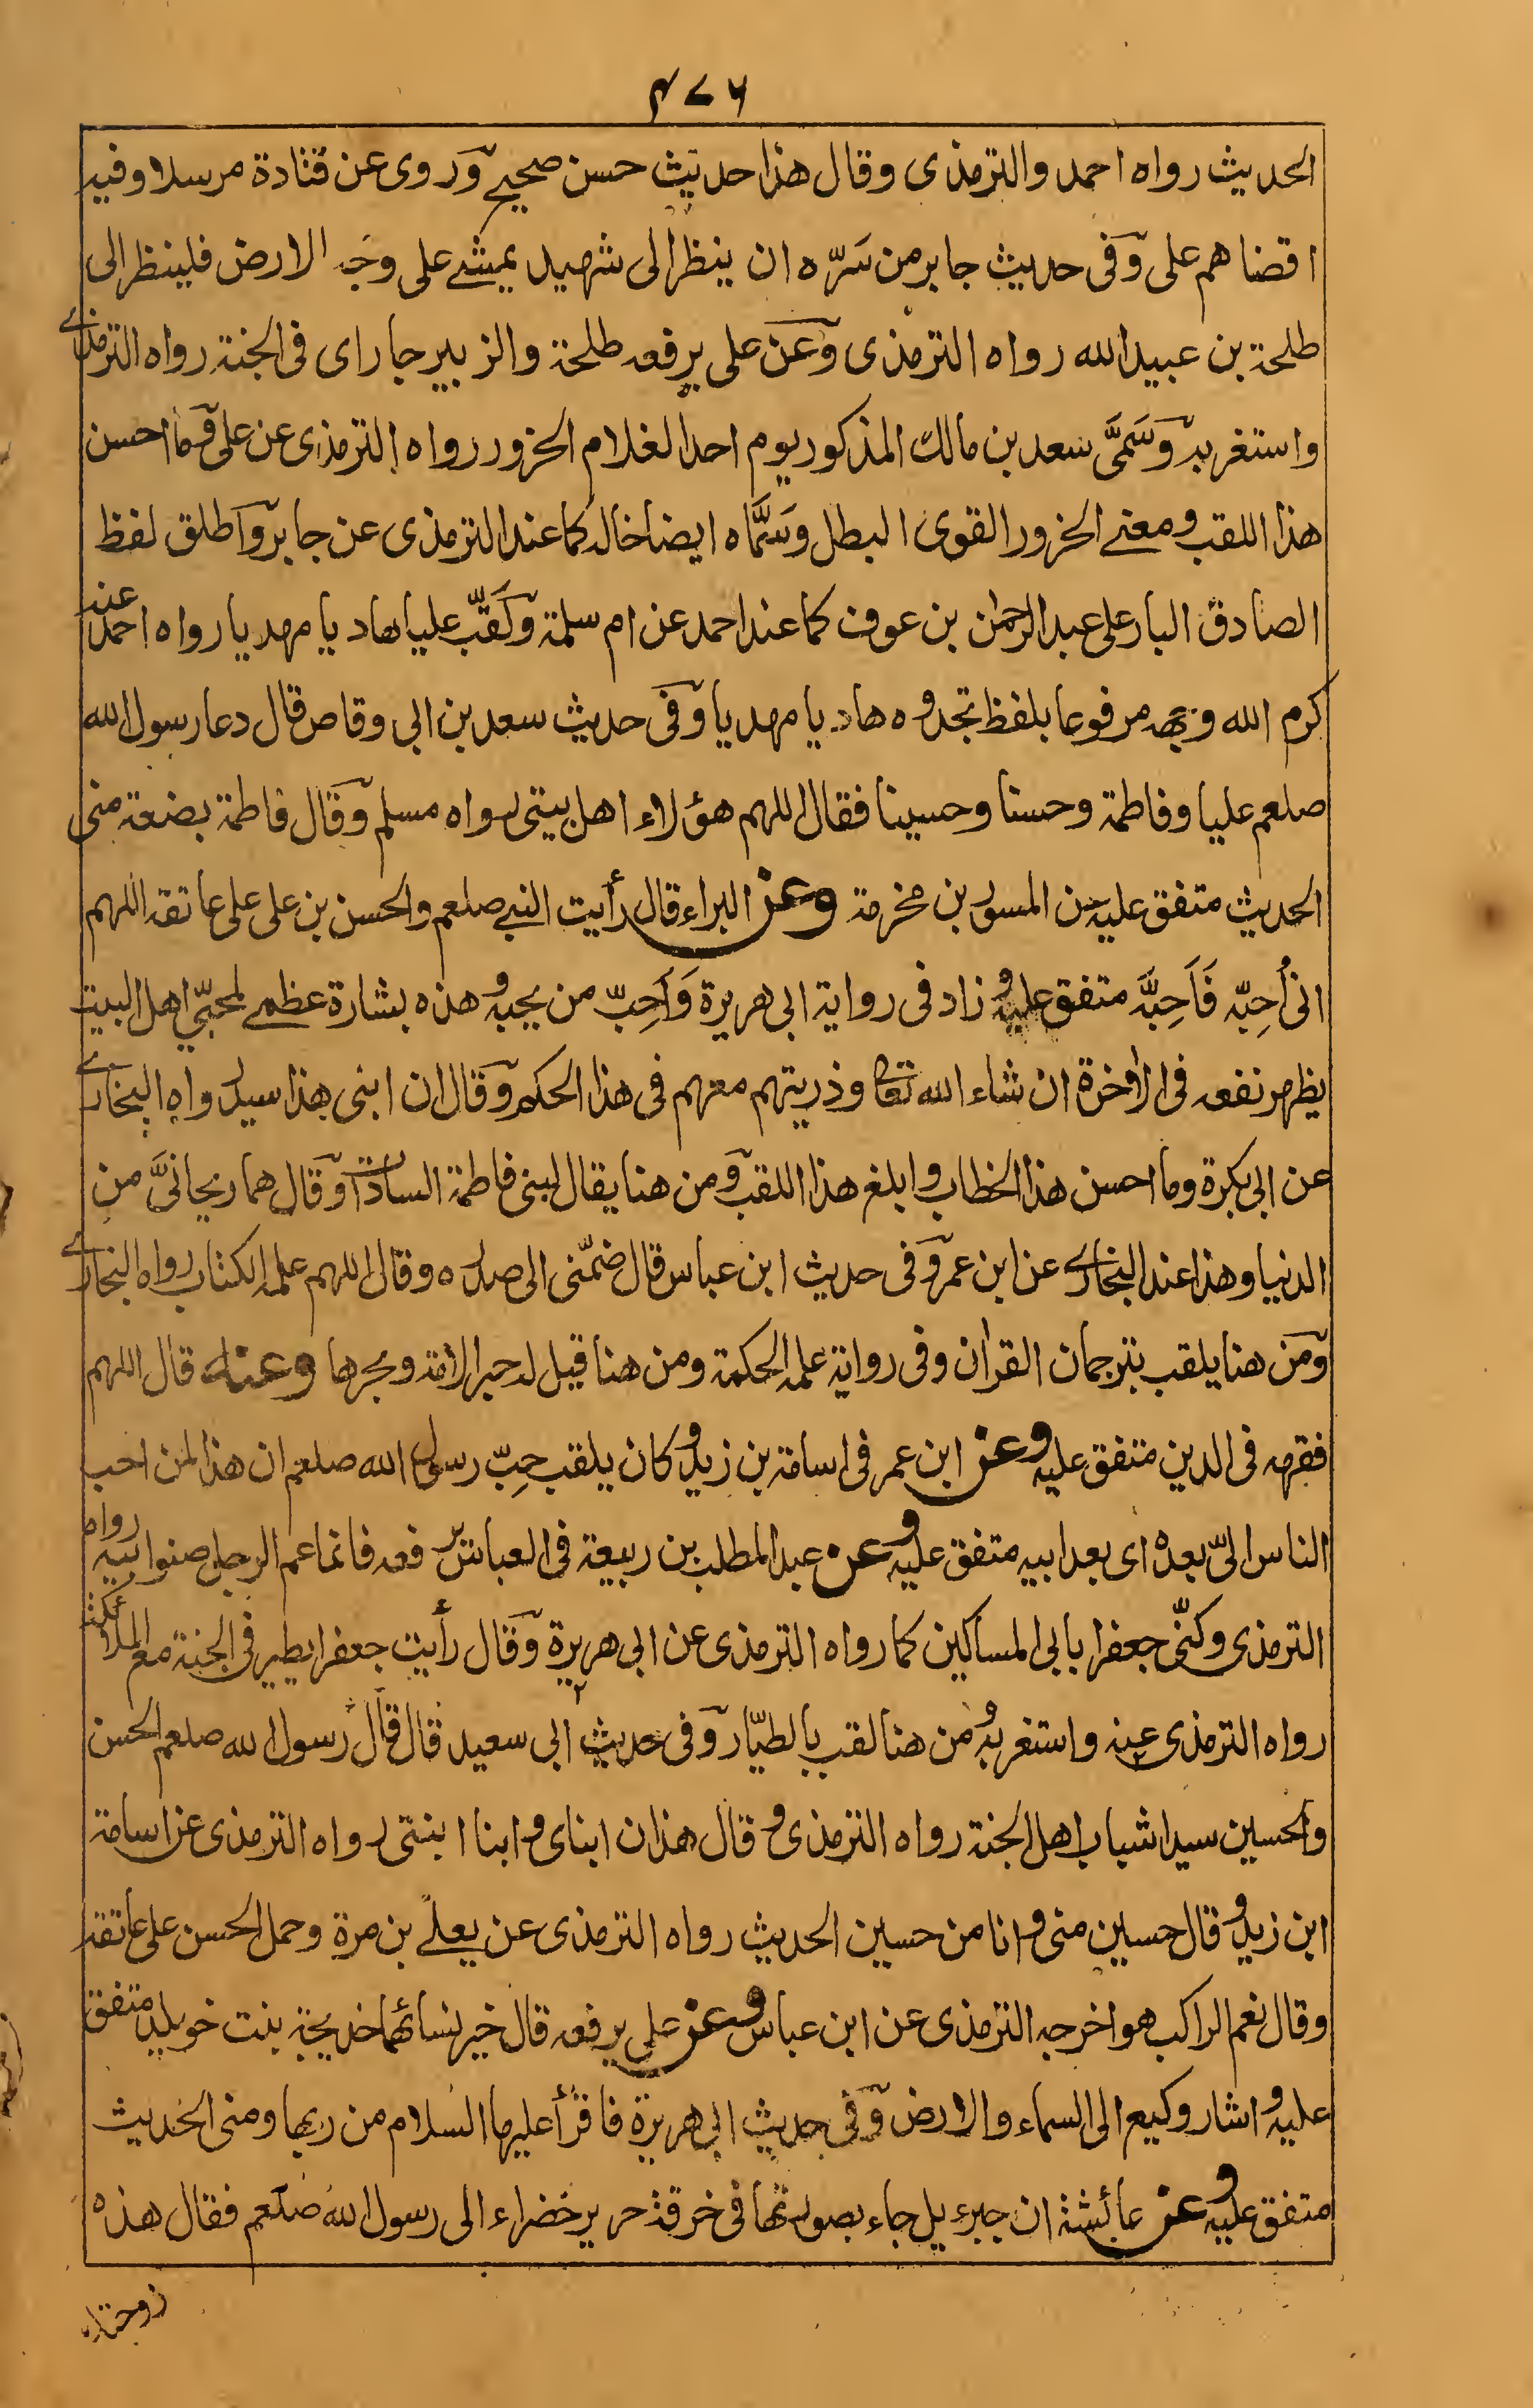 ۴۷۶
الحديث رواه احمد والترمذى وقال هذا حديث حسن صحيح وروى عن قتادة مرسلا وفيه
اقضاهم على وفى حديث جابر من سَرّه ان ينظر الى شهيد يمشے على وجه الارض فلينظر الى
طلحة بن عبيد الله رواه الترمذى وعن على يرفعه طلحة والزبير جاراى فى الجنة رواه الترمذے
واستغربه وسَمَّى سعد بن مالك المذكور يوم احد الغلام الحزور رواه الترمذى عن على وما احسن
هذا اللقب ومعنے الحزور القوى البطل وسَمَّاه ايضا خاله كما عند الترمذى عن جابر واطلق لفظ
الصادق البار على عبد الرحمٰن بن عوف كما عند احمد عن ام سلمة ولَقّب عليا هاديا مهديا رواه احمد عنه
كرم الله وجهه مرفوعا بلفظ تجدوه هاديا مهديا وفى حديث سعد بن ابى وقاص قال دعا رسول الله
صلعم عليا وفاطمة وحسنا وحسينا فقال اللهم هؤلاء اهل بيتى رواه مسلم وقال فاطمة بضعة منى
الحديث متفق عليه عن المسور بن مخرمة وعن البراء قال رأيت النبے صلعم والحسن بن على على عاتقه اللهم
انى أُحِبّه فَاَحِبَّه متفق عليه وزاد فى رواية ابى هريرة وَاَحِبّ من يحبه وهذه بشارة عظمے لمحبّى اهل البيت
يظهر نفعه فى الاٰخرة ان شاء الله تعا وذريتهم معهم فى هذا الحكم وقال ان ابنى هذا سيد رواه البخارے
عن ابى بكرة وما احسن هذا الخطاب وابلغ هذا اللقب ومن هنا يقال لبنى فاطمة السادات وقال هما ريحانىَّ من
الدنيا وهذا عند البخارے عن ابن عمر وفى حديث ابن عباس قال ضمّنى الى صدره وقال اللهم علمه الكتاب رواه البخارے
ومن هنا يلقب بترجمان القراٰن وفى رواية علمه الحكمة ومن هنا قيل له حبر الامة وبحرها وعنه قال اللهم
فقهه فى الدين متفق عليه وعن ابن عمر فى اسامة بن زيد وكان يلقب حِبّ رسول الله صلعم ان هذا لمن احب
الناس الىّ بعده اى بعد ابيه متفق عليه وعن عبد المطلب بن ربيعة فى العباس يرفعه فانما عم الرجل صنو ابيه رواه
الترمذى وكنّى جعفرا بابى المساكين كما رواه الترمذى عن ابى هريرة وقال رأيت جعفرا يطير فى الجنة مع الملائكة
رواه الترمذى عنه واستغربه ومن هنا لقب بالطيّار وفى حديث ابى سعيد قال قال رسول الله صلعم الحسن
والحسين سيدا شباب اهل الجنة رواه الترمذى وقال هذان ابناى وابنا ابنتى رواه الترمذى عن اسامة
ابن زيد وقال حسين منى وانا من حسين الحديث رواه الترمذى عن يعلے بن مرة وحمل الحسن على عاتقه
وقال نعم الراكب هو اخرجه الترمذى عن ابن عباس وعن على يرفعه قال خير نسائها خديجة بنت خويلد متفق
عليه واشار وكيع الى السماء والارض وفى حديث ابى هريرة فاقرأ عليها السلام من ربها ومنى الحديث
متفق عليه وعن عائشة ان جبرءيل جاء بصورتها فى خرقة حرير خضراء الى رسول الله صلعم فقال هذه
زوجتك